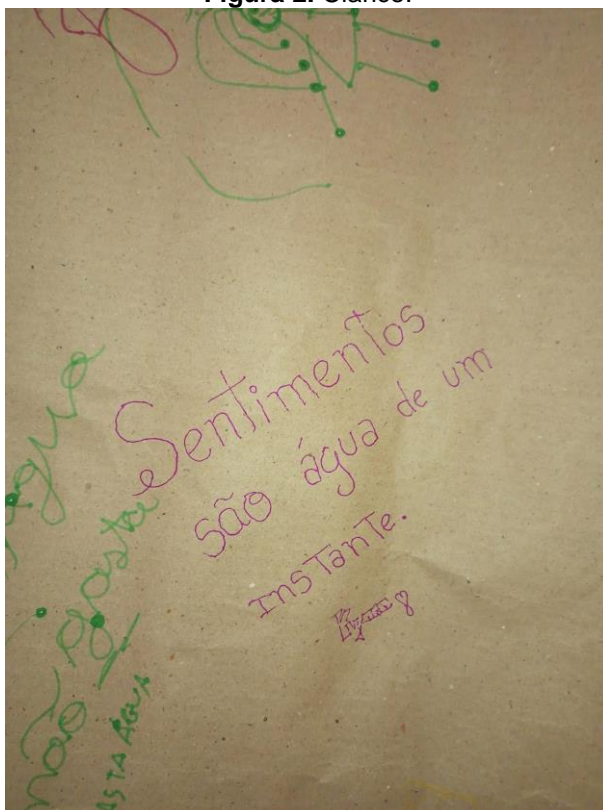 Sentimentos
são água de um
instante.
8
não gosta
ASTA ÁGUA